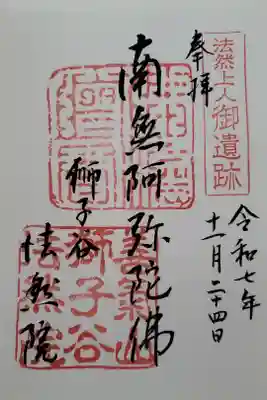 法然上人御遺跡
奉拝
南無阿弥陀佛
獅子谷
法然院
令和七年
十一月二十四日